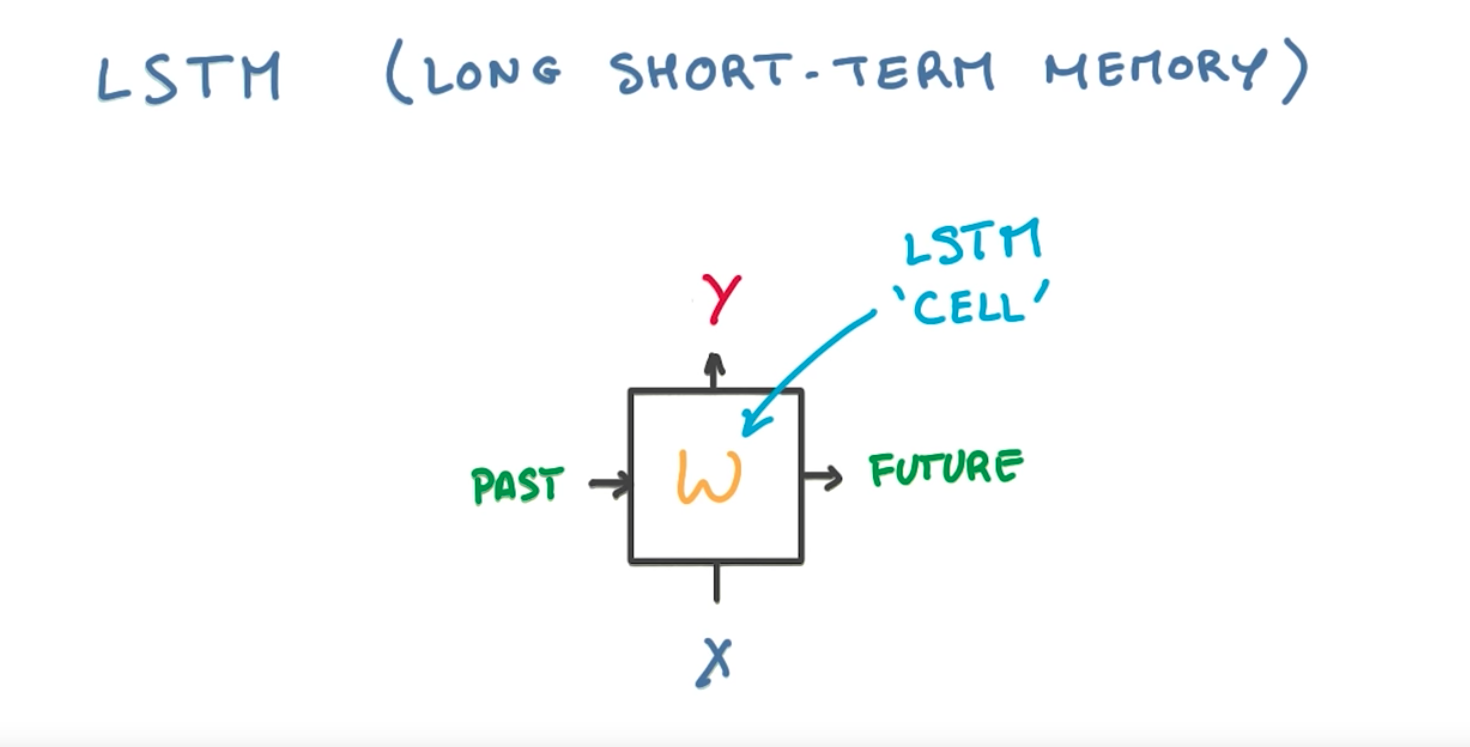 LSTM (LONG SHORT-TERM MEMORY)
LSTM
'CELL'
Y
PAST W FUTURE
X